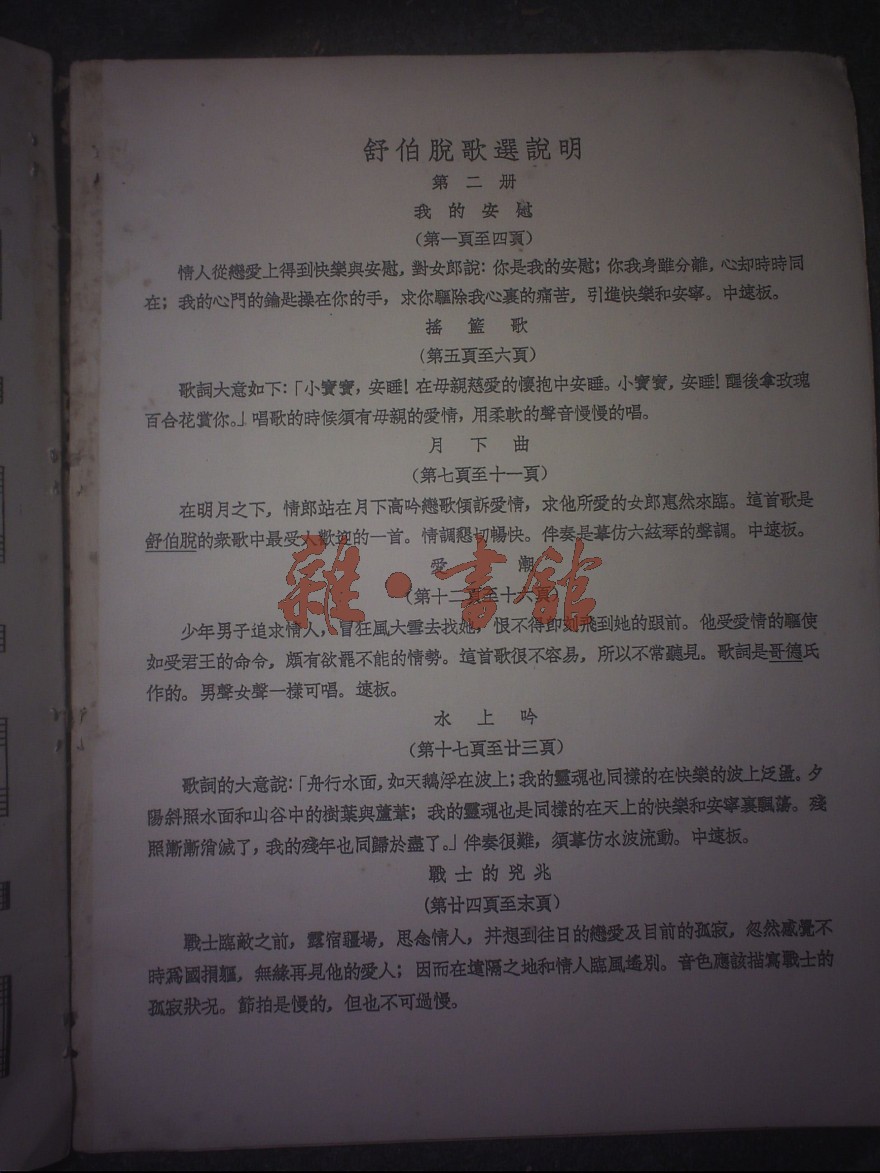 舒伯脫歌選說明
第二册
我的安慰
(第一頁至四頁)
情人從戀愛上得到快樂與安慰，對女郎說：你是我的安慰；你我身雖分離，心却時時同
在；我的心門的鑰匙操在你的手，求你驅除我心裏的痛苦，引進快樂和安寧。中速板。
搖籃歌
(第五頁至六頁)
歌詞大意如下：「小寶寶，安睡！在母親慈愛的懷抱中安睡。小寶寶，安睡！醒後拿玫瑰
百合花賞你。」唱歌的時候須有母親的愛情，用柔軟的聲音慢慢的唱。
月下曲
(第七頁至十一頁)
在明月之下，情郎站在月下高吟戀歌傾訴愛情，求他所愛的女郎惠然來臨。這首歌是
舒伯脫的衆歌中最受人歡迎的一首。情調懇切暢快。伴奏是摹仿六絃琴的聲調。中速板。
愛潮
(第十二頁至十六頁)
少年男子追求情人，冒狂風大雪去找她，恨不得即刻飛到她的跟前。他受愛情的驅使
如受君王的命令，頗有欲罷不能的情勢。這首歌很不容易，所以不常聽見。歌詞是哥德氏
作的。男聲女聲一樣可唱。速板。
水上吟
(第十七頁至廿三頁)
歌詞的大意說：「舟行水面，如天鵝浮在波上；我的靈魂也同樣的在快樂的波上泛盪。夕
陽斜照水面和山谷中的樹葉與蘆葦；我的靈魂也是同樣的在天上的快樂和安寧裏飄蕩。殘
照漸漸消滅了，我的殘年也同歸於盡了。」伴奏很難，須摹仿水波流動。中速板。
戰士的兇兆
(第廿四頁至末頁)
戰士臨敵之前，露宿疆場，思念情人，幷想到往日的戀愛及目前的孤寂，忽然感覺不
時爲國捐軀，無緣再見他的愛人；因而在遠隔之地和情人臨風遙別。音色應該描寫戰士的
孤寂狀况。節拍是慢的，但也不可過慢。
雜·書館